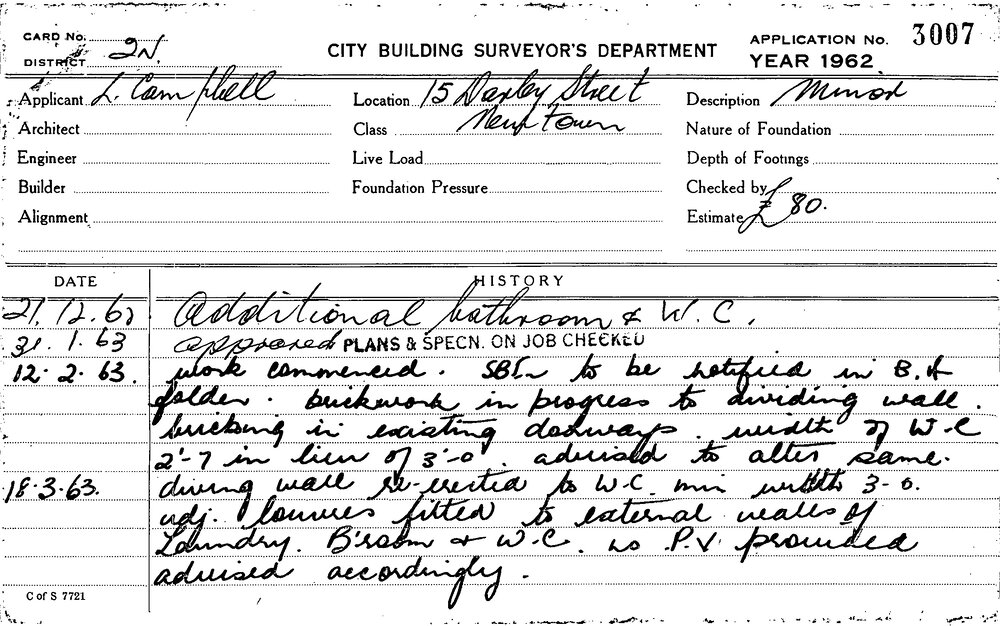 CARD No.
DISTRICT 2N.
CITY BUILDING SURVEYOR'S DEPARTMENT
APPLICATION No. 3007
YEAR 1962
Applicant L. Campbell
Location 15 Darley Street
Description Minor
Architect
Class Newtown
Nature of Foundation
Engineer
Live Load
Depth of Footings
Builder
Foundation Pressure
Checked by
Alignment
Estimate £ 80.
DATE
HISTORY
21.12.62 Additional bathroom & W.C.
31.1.63 approved PLANS & SPECN. ON JOB CHECKED
12.2.63. work commenced. to be notified in B.A
folder. brickwork in progress to dividing wall.
bricking in existing doorways. width of W.C
2'-7 in lieu of 3'-0". advised to alter same.
18.3.63. diving wall re-erected to W.C. min width 3-0.
adj. louvres fitted to external walls of
Laundry. B'room & W.C. no P.V. provided
advised accordingly.
C of S 7721